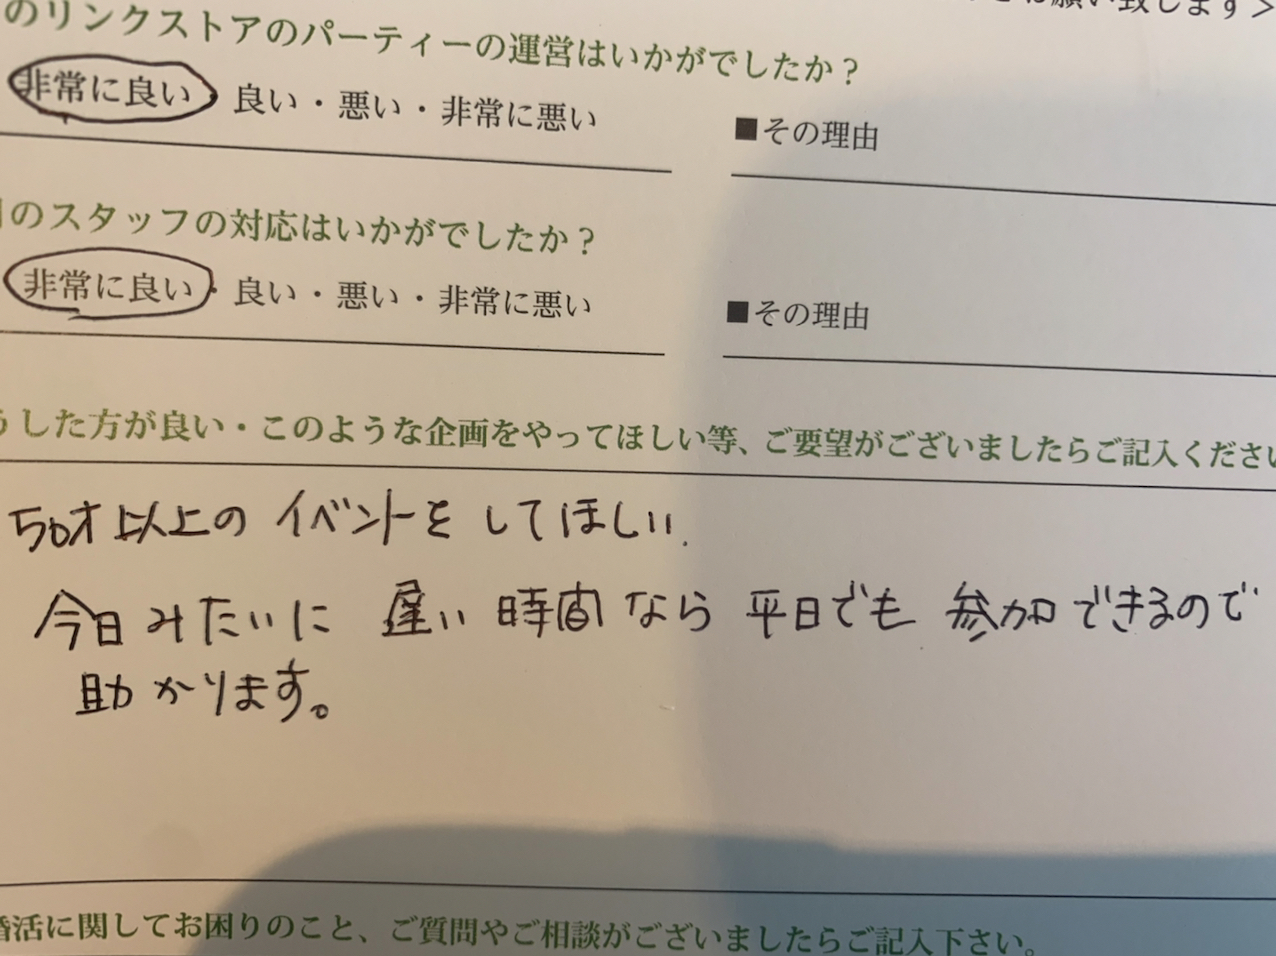 お願い致します＞
のリンクストアのパーティーの運営はいかがでしたか？
非常に良い・良い・悪い・非常に悪い
■その理由
のスタッフの対応はいかがでしたか？
非常に良い・良い・悪い・非常に悪い
■その理由
うした方が良い・このような企画をやってほしい等、ご要望がございましたらご記入ください
50才以上のイベントをしてほしい.
今日みたいに遅い時間なら平日でも参加できるので
助かります。
婚活に関してお困りのこと、ご質問やご相談がございましたらご記入下さい。